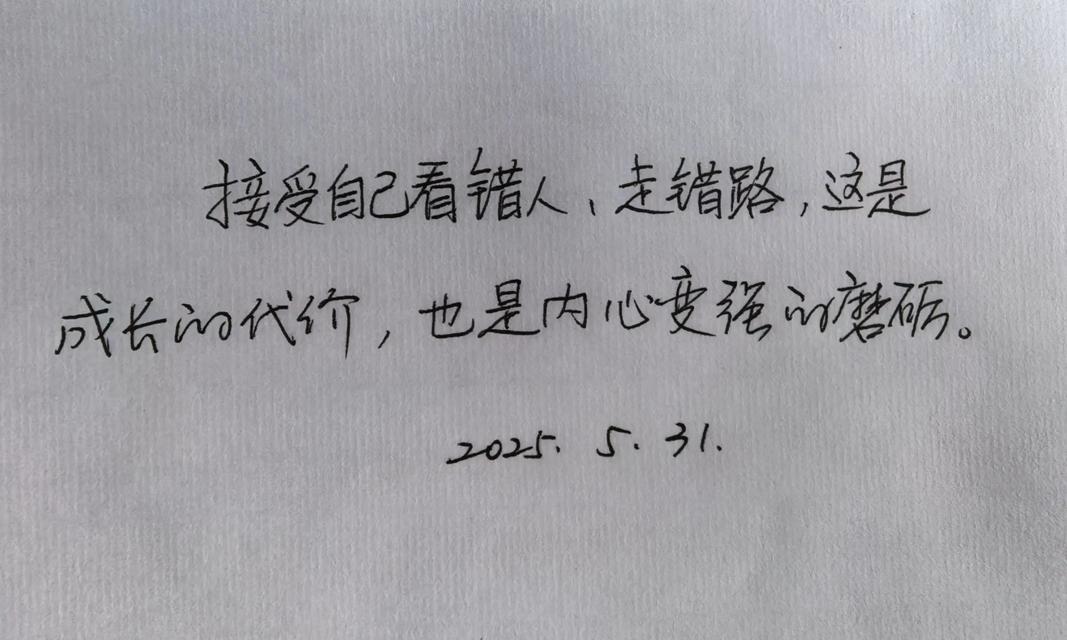 接受自己看错人、走错路,这是
成长的代价,也是内心变强的磨砺。
2025. 5. 31.